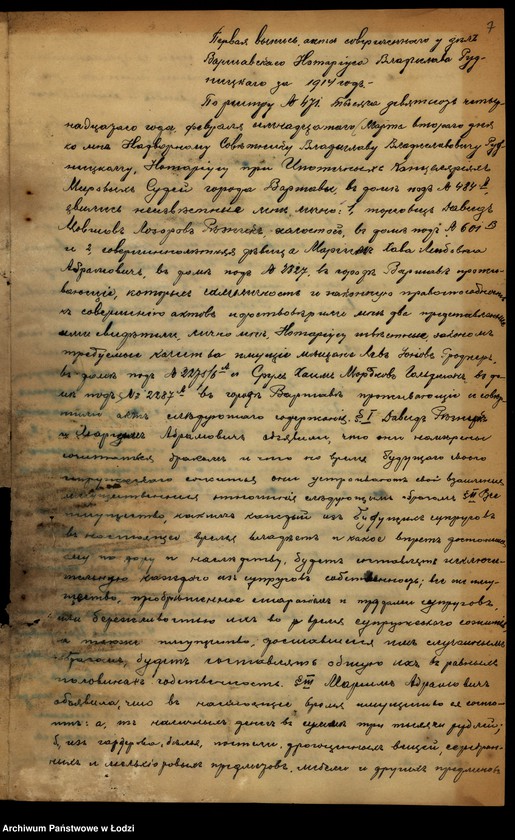 7
Первая выпись акта совершеннаго у дѣлъ
Варшавскаго Нотаріуса Владислава Руд-
ницкаго за 1914 годъ.-
По реестру № 471. Тысяча девятсотъ четыр-
надцатаго года, февраля семнадцатаго /Марта второго дня
ко мнѣ Надворному Совѣтнику Владиславу Владиславовичу Руд-
ницкому, Нотаріусу при Ипотечныхъ Канцеляріяхъ
Мировыхъ Судей города Варшавы въ домѣ подъ № 484
явились неизвѣстные мнѣ лично: 1, торговецъ Давидъ
холостой, въ домѣ подъ № 601
и 2, совершеннолѣтняя дѣвица Маріемъ Хава Лейбовна
Абрамовичъ, въ домѣ подъ № 2827, въ городѣ Варшавѣ прожи-
вающіе, которыхъ самоличность и законную правоспособность
къ совершенію актовъ удостовѣрили мнѣ два представленные
ими свидѣтели, лично мнѣ, Нотаріусу извѣстные, закономъ
требуемыя качества имущіе мѣщане
въ домѣ подъ № и Хаимъ въ до-
мѣ подъ № 2287 въ городѣ Варшавѣ проживающіе и совер-
шили актъ слѣдующаго содержанія. § I Давидъ
и Маріемъ Абрамовичъ объявили, что они намѣрены
сочетаться бракомъ и что на время будущаго своего
супружескаго сожитія они устраиваютъ свои взаимныя
имущественныя отношенія слѣдующимъ образомъ § II Все
имущество, какимъ каждый изъ будущихъ супруговъ
въ настоящее время владѣетъ и какое впредь достанется
ему по дару и наслѣдству, будетъ составлять исключи-
тельную каждаго изъ супруговъ собственность; все же иму-
щество, пріобрѣтенное стараніемъ и трудами супруговъ,
или бережливостью ихъ во время супружескаго сожитія,
а также имущество, доставшееся имъ случайнымъ
образомъ, будетъ составлять общую ихъ въ равныхъ
половинахъ собственность. § III Маріемъ Абрамовичъ
объявила, что въ настоящее время имущество ея состо-
итъ: а, изъ наличныхъ денегъ въ суммѣ три тысячи рублей;
б, изъ гардероба, бѣлья, постели, драгоцѣнныхъ вещей, серебрян-
ныхъ и мельхіоровыхъ предметовъ, мебели и другихъ предметовъ
Archiwum Państwowe w Łodzi